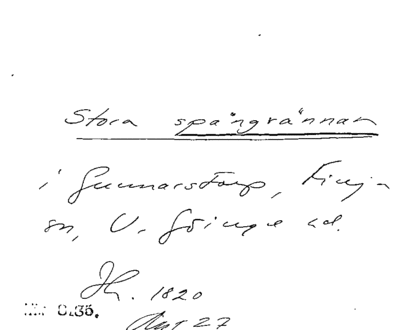 Stora spångrännan
i Gunnarstorp, Finja
sn, V. Göinge hd.
Jh. 1820